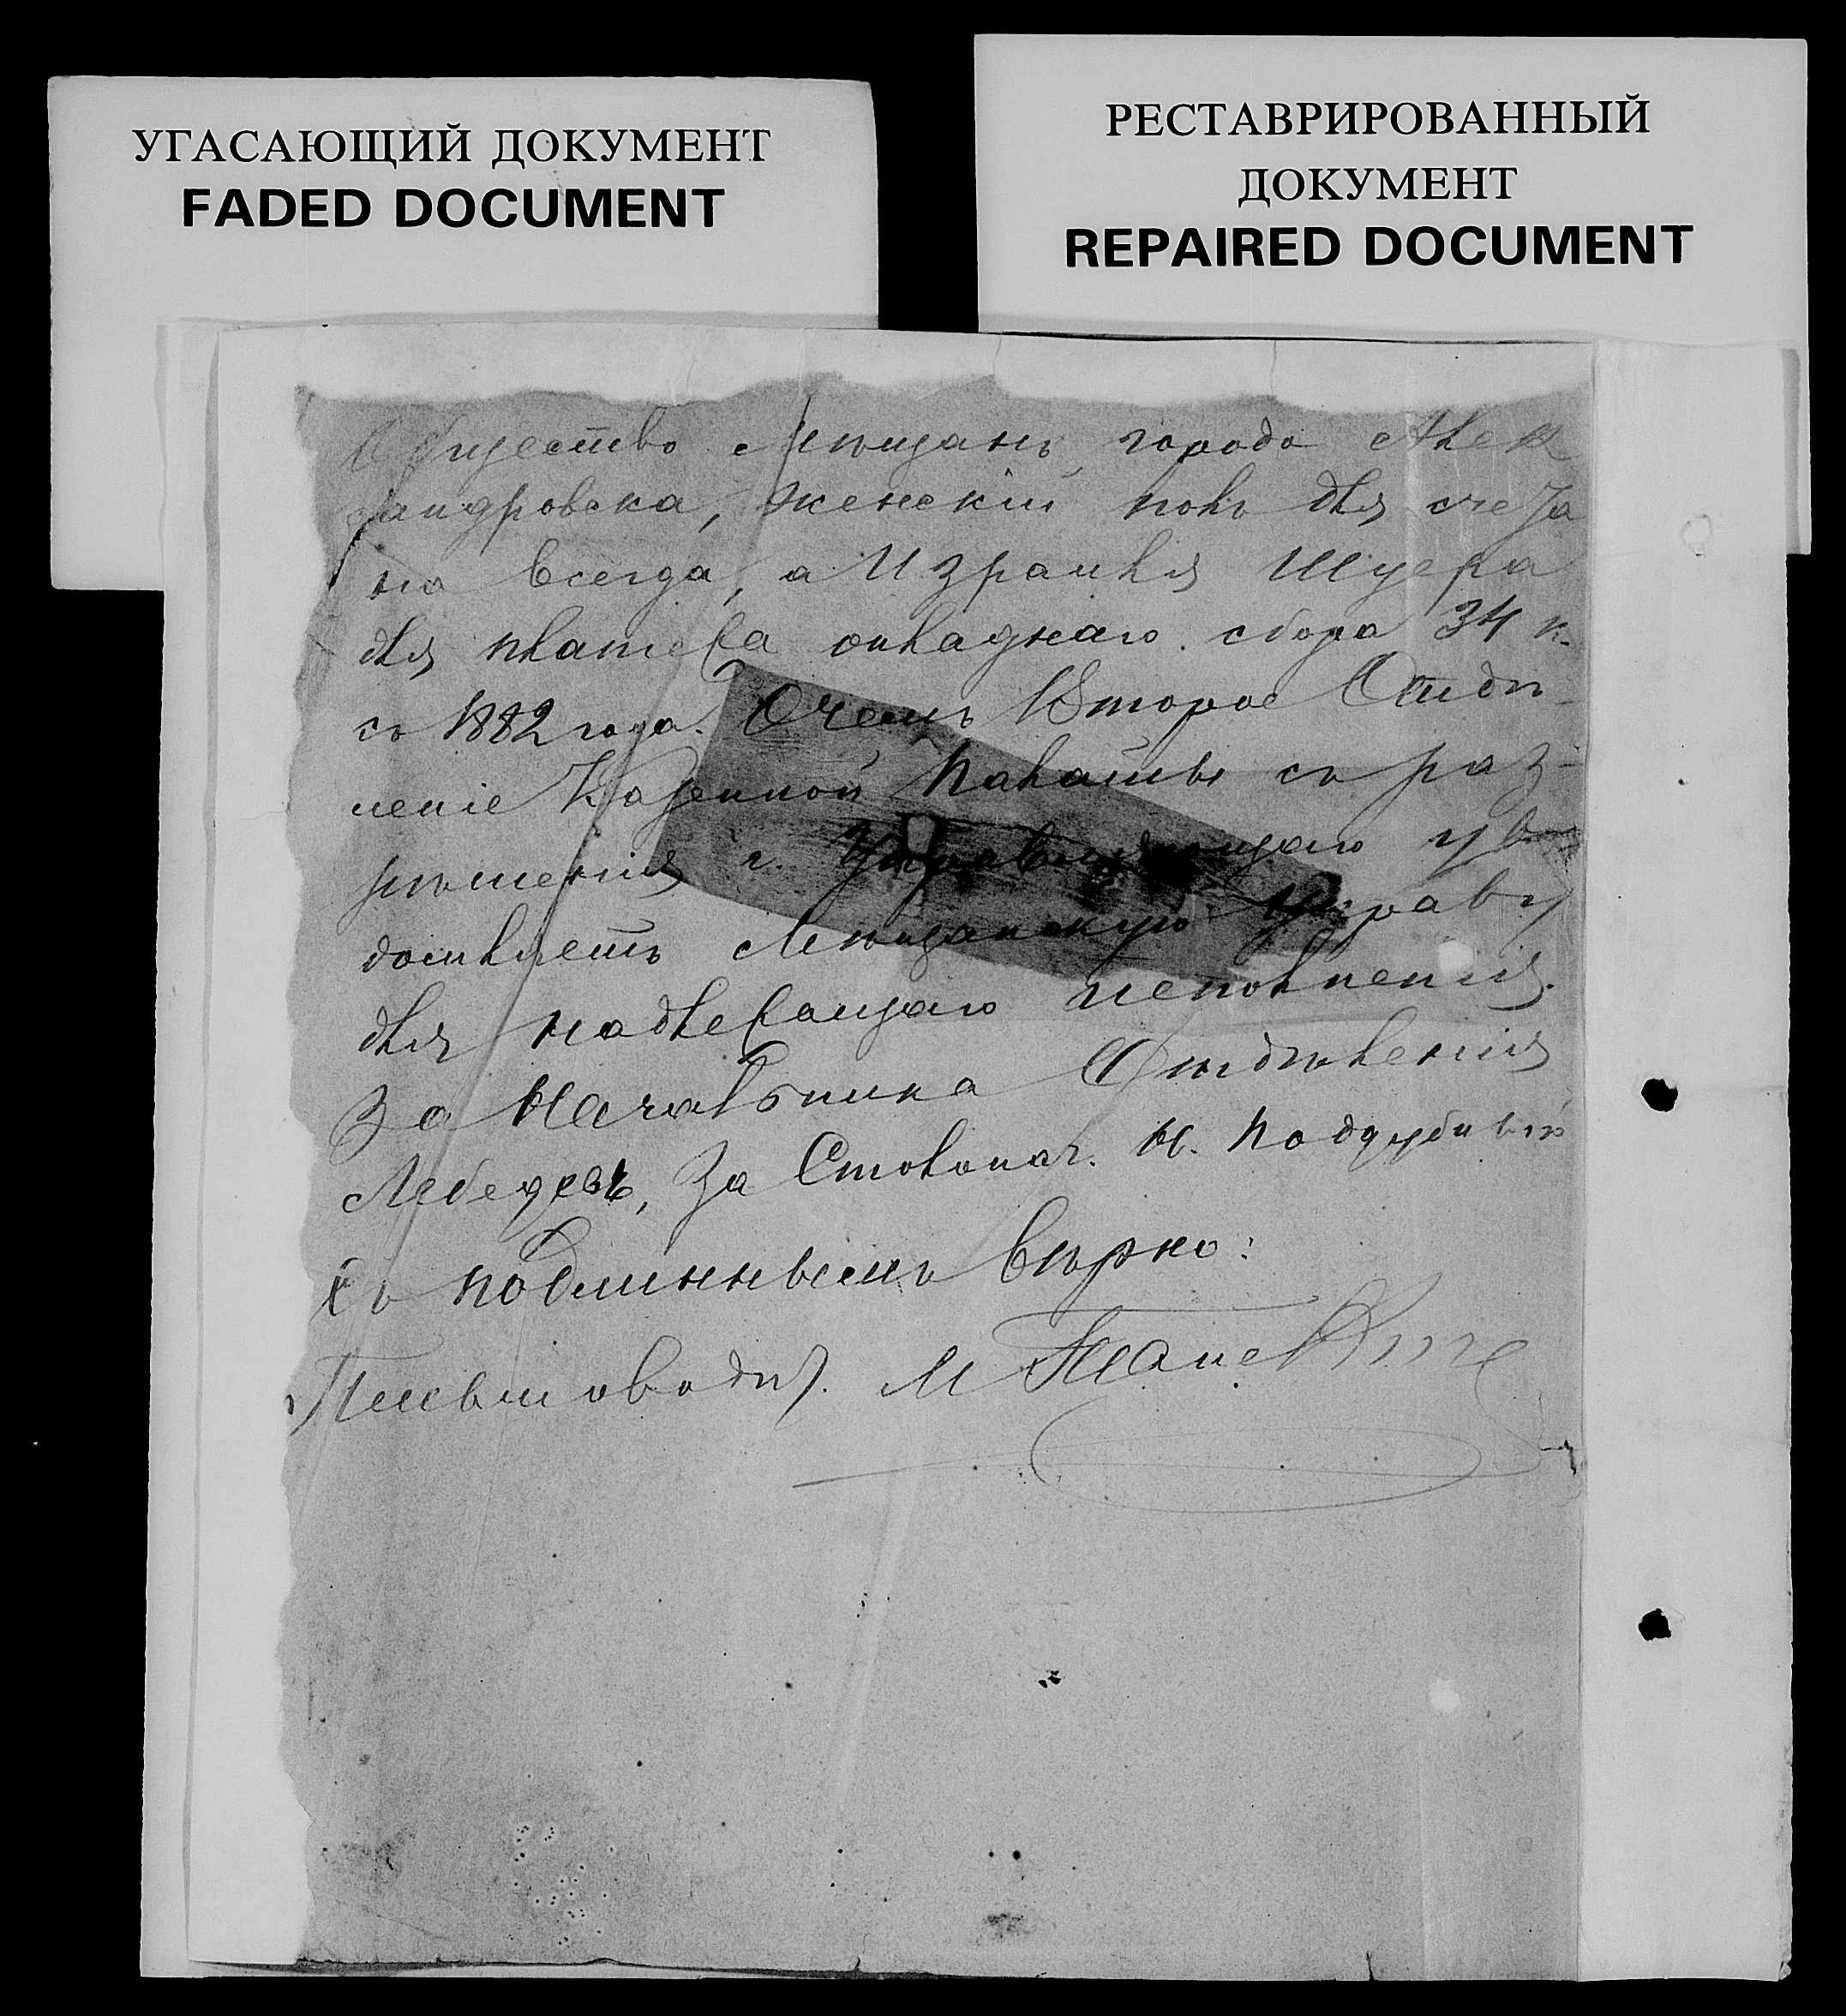 УГАСАЮЩИЙ ДОКУМЕНТ
FADED DOCUMENT
РЕСТАВРИРОВАННЫЙ
ДОКУМЕНТ
REPAIRED DOCUMENT
Общество Мѣщанъ города Алек
сандровска, женскій полъ для счета
на всегда, а Израиля Шуера
для платежа окладнаго сбора 34 к.
съ 1882 года. О чемъ Второе Отдѣ-
леніе Казенной Палаты съ раз-
рѣшенія г. Управляющаго увѣ
домляетъ Мѣщанскую Управу
для надлежащаго исполненія.
За Начальника Отдѣленія
Лебедевъ, За Столонач. Н. Поддубный
Съ подлиннымъ вѣрно:
Письмовод. М